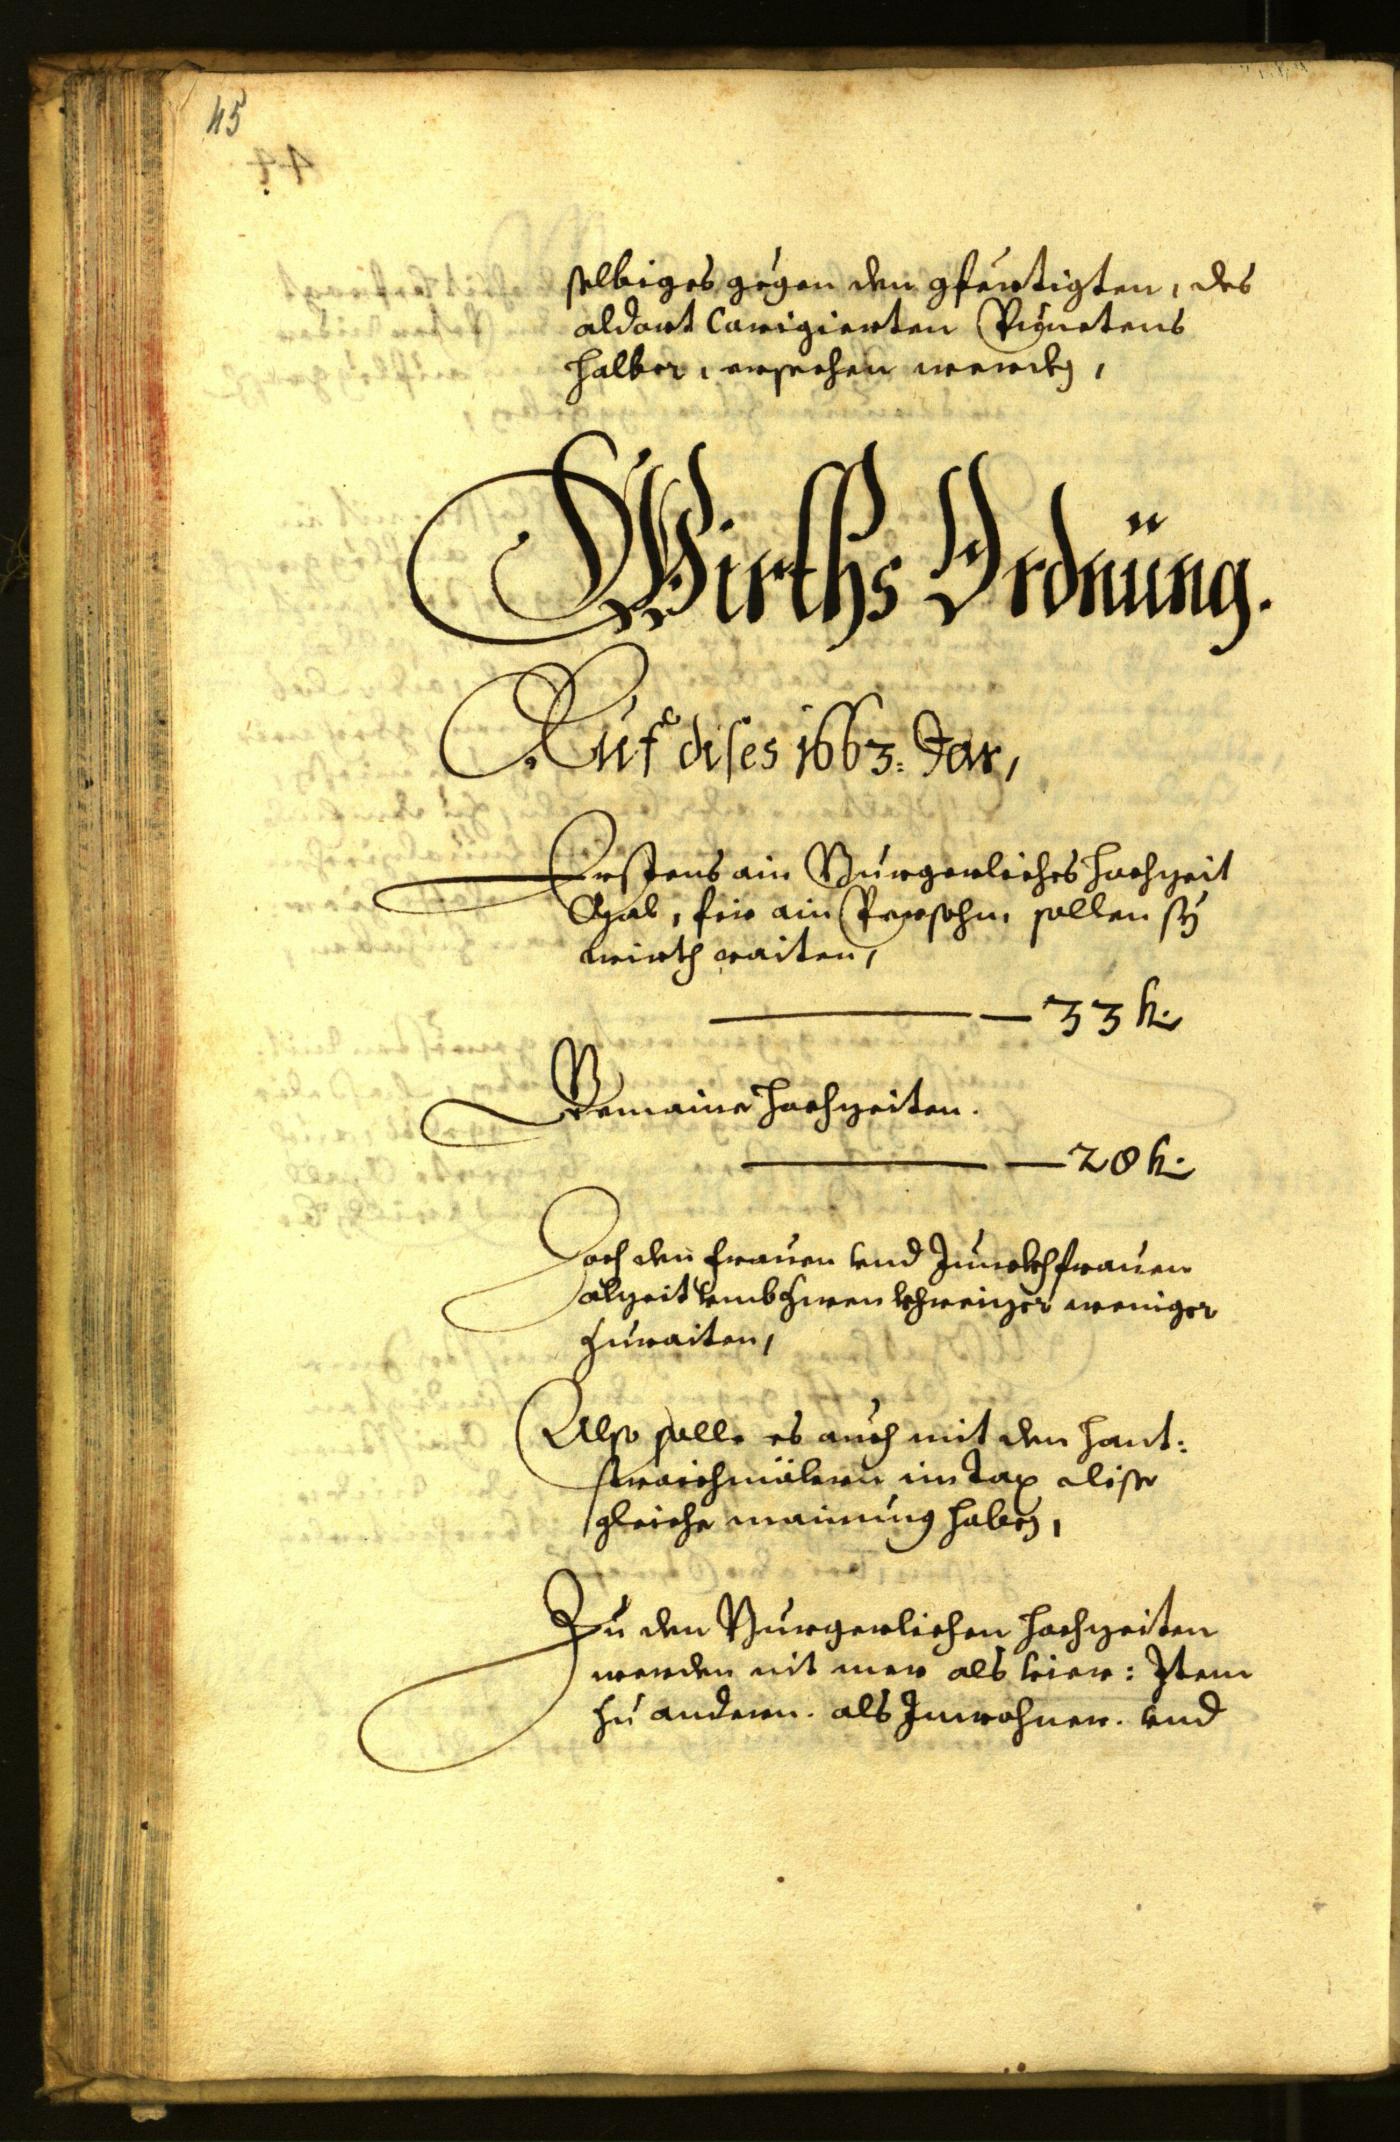 45
selbiges gegen den gfertigten, des
aldort Corrigierten Punctens
halber, ersechen werden,
Wirths Ordnung.
Auf dises 1663: Jar,
Erstens ain Burgerliches Hochzeit
Mal, fir ain Persohn, sollen sÿ
wirth raiten,
33 k.
Gemaine Hochzeiten.
28 k.
Doch den Frauen vnd Junckhfrauen
alzeit vmb zwen khreizer weniger
zuraiten,
Also solle es auch mit den Hant:
straichmälern im Tax dise
gleiche mainung haben,
Zu den Burgerlichen Hochzeiten
werden nit mer als vier: Item
zu andern. als Inwohner. vnd